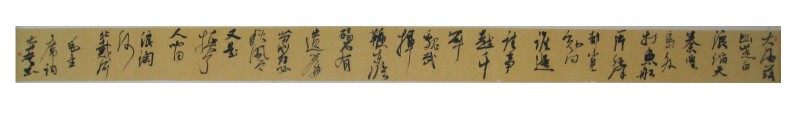 大雨落
幽燕白
浪滔天
秦皇
岛外
打鱼船
一片汪洋
都不见
知向
谁边
往事
越千
年
魏武
挥
鞭东临
碣石有
遗篇
萧瑟
秋风今
又是
换了
人间
浪淘
沙
北戴河
毛主
席词